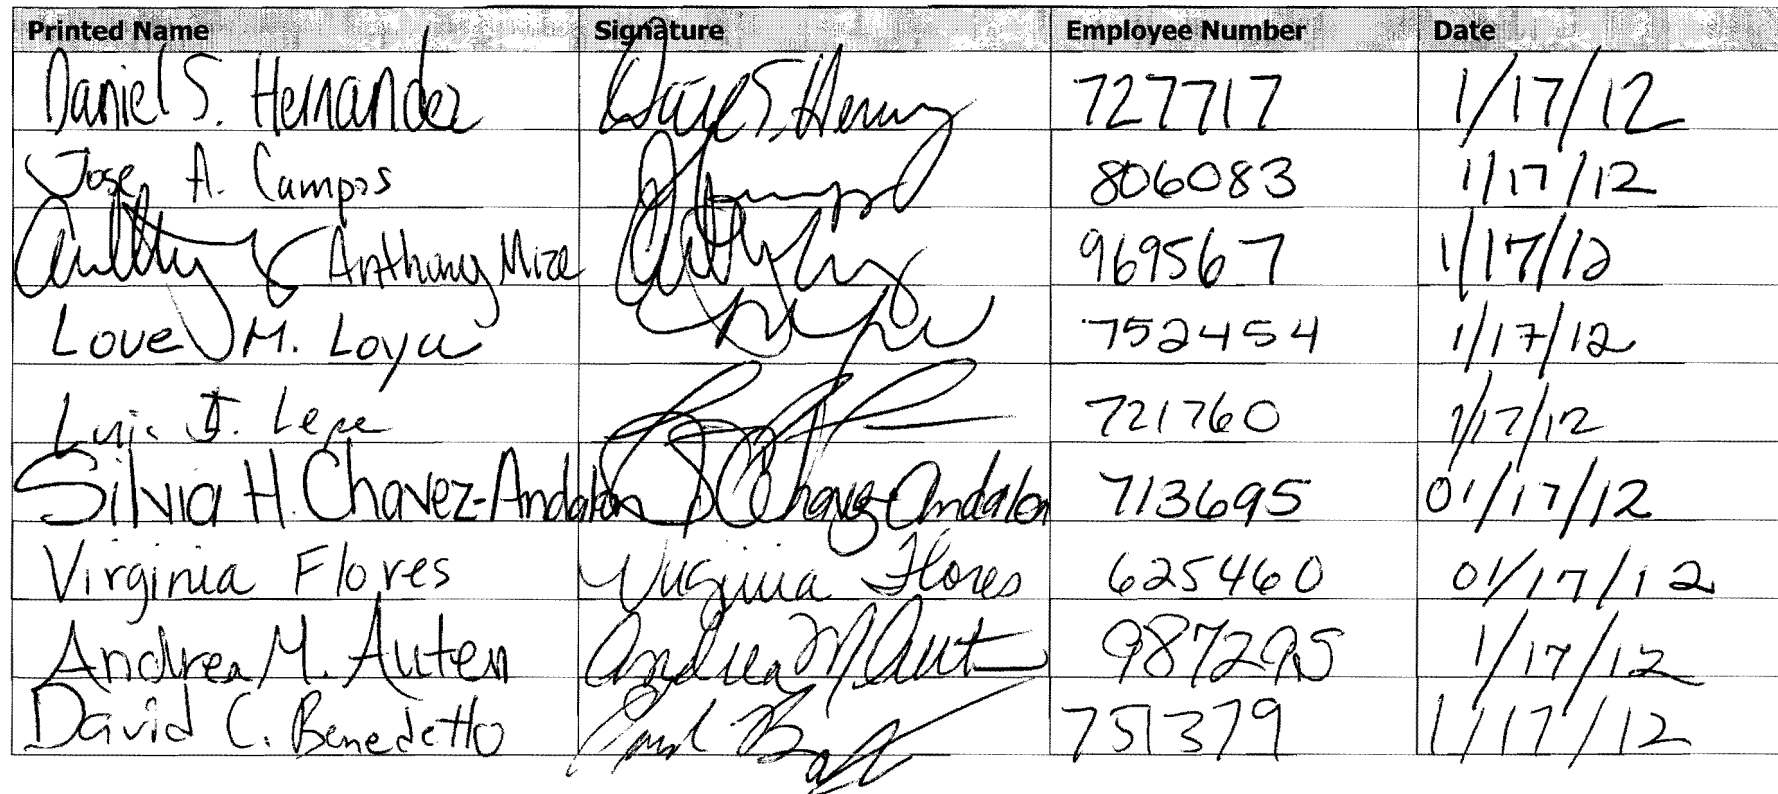 Printed Name Signature Employee Number Date
Daniel S. Hernandez 727717 1/17/12
Jose A. Campos 806083 1/17/12
Anthony Mize 969567 1/17/12
Love M. Loya 752454 1/17/12
Luis J. Lepe 721760 1/17/12
Silvia H. Chavez-Andalon S Chavez-Andalon 713695 01/17/12
Virginia Flores Virginia Flores 625460 01/17/12
Andrea M. Auten Andrea M Aut 987295 1/17/12
David C. Benedetto 751379 1/17/12